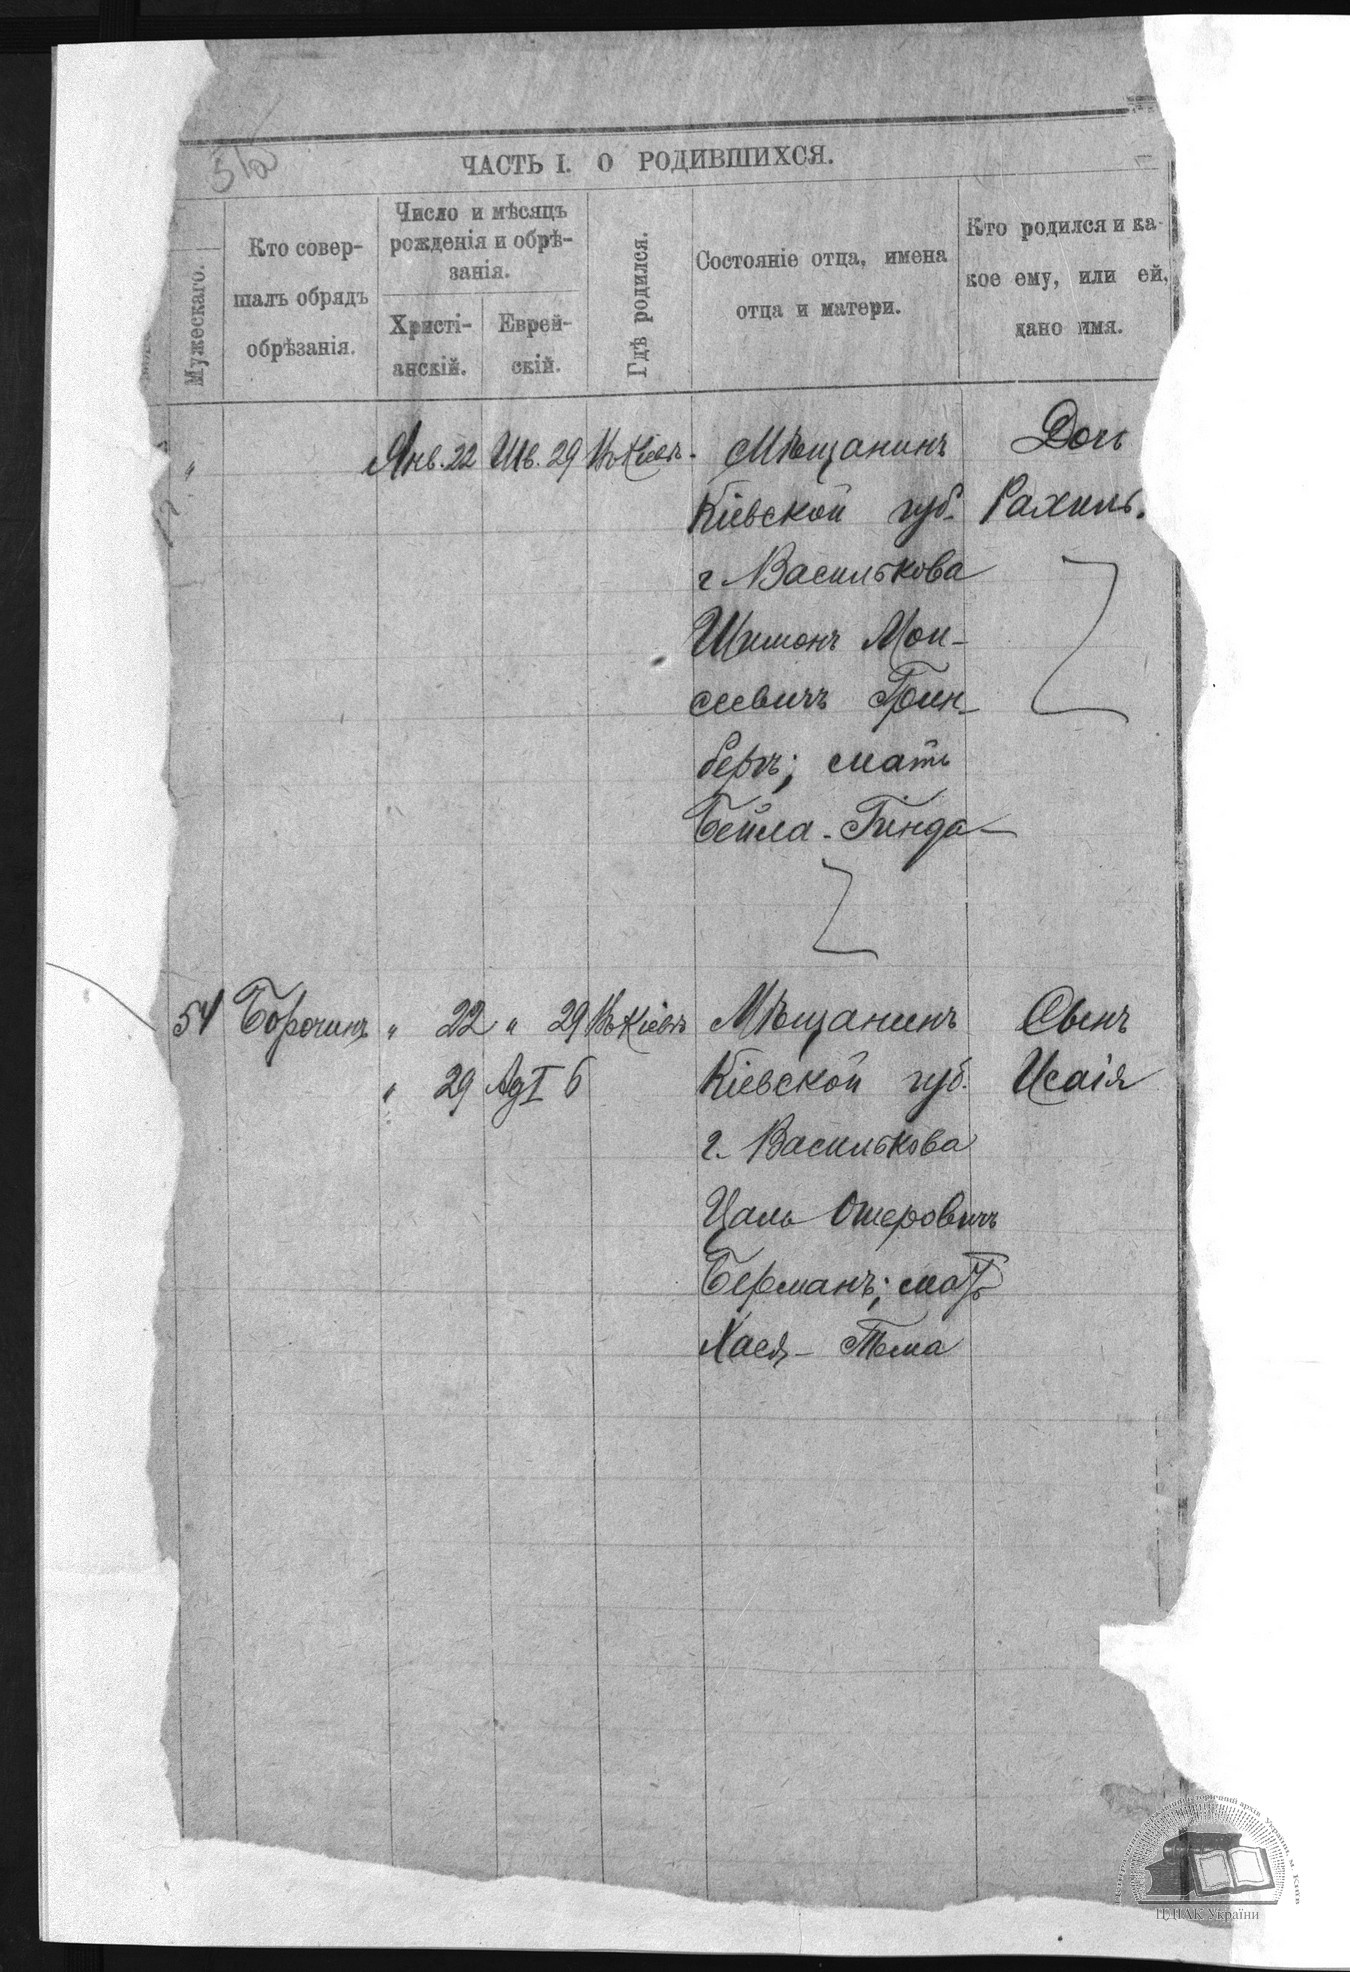 ЧАСТЬ I. О РОДИВШИХСЯ.
Мужескаго.
Кто совер-
шалъ обрядъ
обрѣзанія.
Число и мѣсяцъ
рожденія и обрѣ-
занія.
Христі-
анскій.
Еврей-
скій.
Гдѣ родился.
Состояніе отца, имена
отца и матери.
Кто родился и ка-
кое ему, или ей,
дано имя.
" Янв. 22 Шв. 29 Въ Кіевѣ. Мѣщанинъ Дочь
Кіевской губ. Рахиль.
г. Василькова
Шимонъ Мои-
сеевичъ Грин-
бергъ; мать
Бейла-Гинда
54 Борочинъ " 22 " 29 Въ Кіевѣ Мѣщанинъ Сынъ
" 29 Ад I 6 Кіевской губ. Исаія
г. Василькова
Цаль Ошеровичъ
Берманъ; мать
Хася - Тема
ЦДІАК України